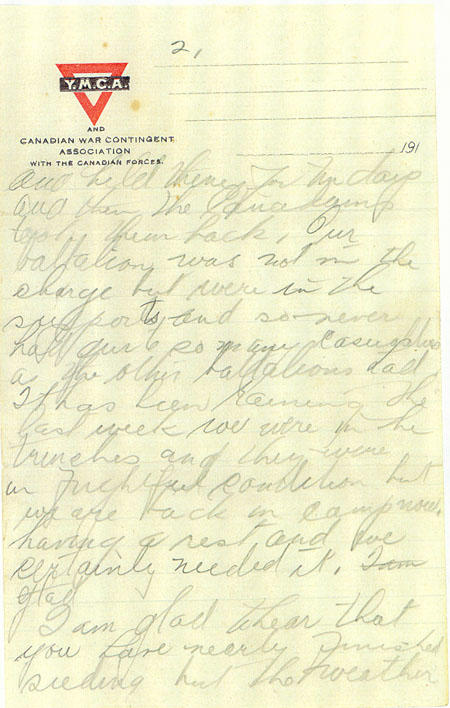 2,
Y.M.C.A.
AND
CANADIAN WAR CONTINGENT
ASSOCIATION
WITH THE CANADIAN FORCES.
191
and held them for ten days
and then the Canadians
took them back, Our
battalion was not in the
charge but were in the
supports and so never
had quite so many casualties
a the other battalions had.
It has been reining the
last week we were in the
trenches and they were
in frightful condition but
we are back in camp now.
having a rest and we
certainly needed it. I am
glad
I am glad to hear that
you have nearly finished
seeding but the weather